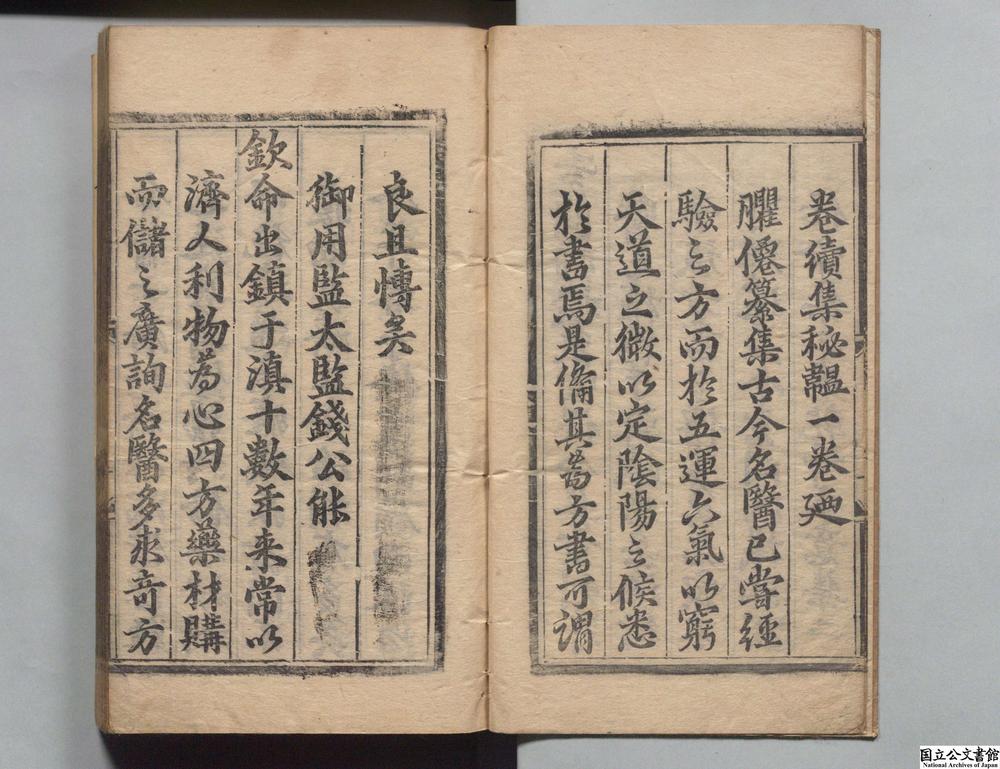 卷續集秘韞一卷廼
臞僊纂集古今名醫已嘗經
驗之方而於五運六氣以窮
天道之微以定陰陽之候悉
於書焉是脩其為方書可謂
良且愽矣
御用監太監錢公能
欽命出鎮于滇十數年来常以
濟人利物為心四方藥材購
而儲之廣詢名醫多求竒方
国立公文書館
National Archives of Japan